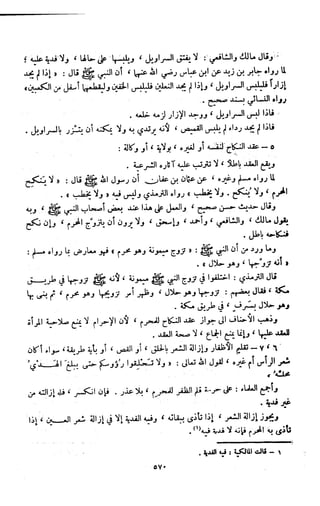 وقال مالك والشافعي : لا يفتق السراويل ، ويلبسها على حالها ، ولا فدية عليه ؛
لما رواه جابر بن زيد عن ابن عباس رضي الله عنهما ، أن النبي ﷺ قال : « إذا لم يجد
إزاراً فليلبس السراويل ، وإذا لم يجد النعلين فليلبس الخفين وليقطعهما أسفل من الكعبين »
رواه النسائي بسند صحيح .
فإذا لبس السراويل ، ووجد الإزار لزمه خلعه .
فإذا لم يجد رداء لم يلبس القميص ، لأنه يرتدي به ولا يمكنه أن يتزر بالسراويل .
٥ – عقد النكاح لنفسه أو لغيره ، بولاية ، أو وكالة :
ويقع العقد باطلاً ، لا تترتب عليه آثاره الشرعية .
لما رواه مسلم وغيره ، عن عثمان بن عفان أن رسول الله ﷺ قال : « لا ينكح
المحرم ، ولا يُنكح . ولا يخطب » رواه الترمذي وليس فيه « ولا يخطب » .
وقال حديث حسن صحيح ، والعمل على هذا عند بعض أصحاب النبي ﷺ ، وبه
يقول مالك ، والشافعي ، وأحمد ، وإسحق ، ولا يرون أن يتزوج المحرم ، وإن نكح
فنكاحه باطل .
وما ورد من أن النبي ﷺ : « تزوج ميمونة وهو محرم » فهو معارض بما رواه مسلم :
« أنه تزوجها ، وهو حلال » .
قال الترمذي : اختلفوا في تزوج النبي ﷺ ميمونة ، لأنه ﷺ تزوجها في طريق
مكة ، فقال بعضهم : تزوجها وهو حلال ، وظهر أمر تزويجها وهو محرم ، ثم بنى بها
وهو حلال بسرف ، في طريق مكة .
وذهب الأحناف إلى جواز عقد النكاح للمحرم ، لأن الإحرام لا يمنع صلاحية المرأة
للعقد عليها ، وإنما يمنع الجماع ، لا صحة العقد .
٦ ، ٧ – تقليم الأظفار وإزالة الشعر بالحلق ، أو القص ، أو بأية طريقة ، سواء أكان
شعر الرأس أم غيره ، لقول الله تعالى : « ولا تحلقوا رؤوسكم حتى يبلغ الهدي
محله »
وأجمع العلماء : على حرمة قلم الظفر للمحرم ، بلا عذر . فإن انكسر ، فله إزالته من
غير فدية .
ويجوز إزالة الشعر ، إذا تأذى ببقائه ، وفيه الفدية إلا في إزالة شعر العين ، إذا
تأذى به المحرم فإنه لا فدية فيه(١) .
١ – قالت المالكية : فيه الفدية .
٥٧٠